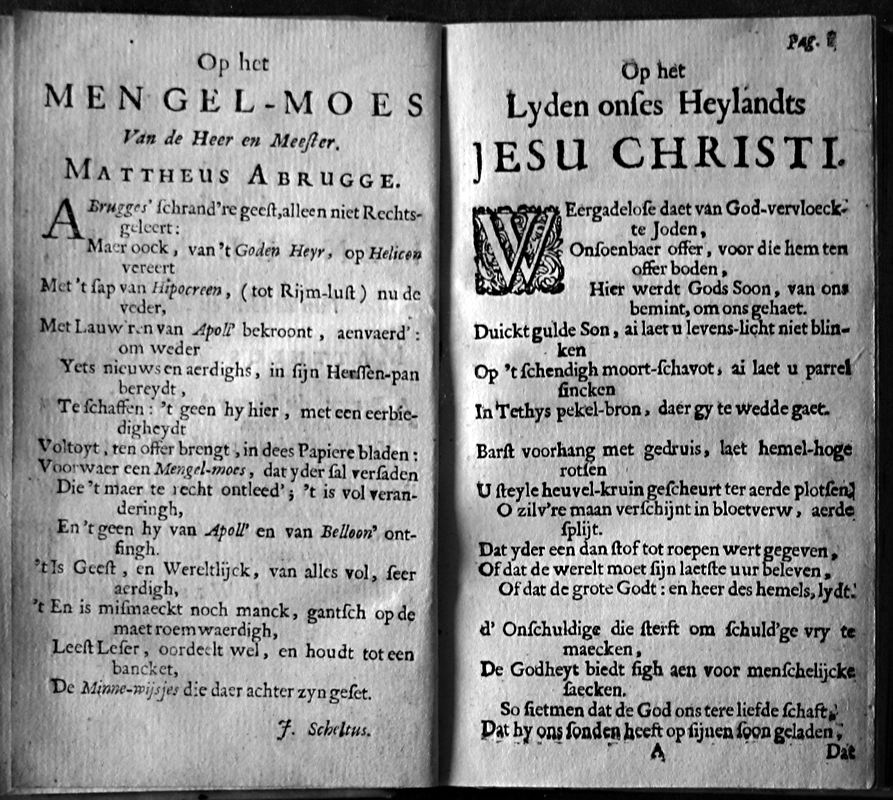 Op het
MENGEL-MOES
Van de Heer en Meeſter.
MATTHEUS ABRUGGE.
ABrugges' ſchrand're geeſt, alleen niet Rechts-
geleert:
Maer oock, van 't Goden Heyr, op Helicon
vereert
Met 't ſap van Hipocreen, (tot Rijm-luſt) nu de
veder,
Met Lauw'ren van Apoll' bekroont, aenvaerd':
om weder
Yets nieuws en aerdighs, in ſijn Herſſen-pan
bereydt,
Te ſchaffen: 't geen hy hier, met een eerbie-
digheydt
Voltoyt, ten offer brengt, in dees Papiere bladen:
Voorwaer een Mengel-moes, dat yder ſal verſaden
Die 't maer te recht ontleed'; 't is vol veran-
deringh,
En 't geen hy van Apoll' en van Belloon' ont-
fingh.
't Is Geeſt, en Wereltlijck, van alles vol, ſeer
aerdigh,
't En is miſmaeckt noch manck, gantſch op de
maet roemwaerdigh,
Leeſt Leſer, oordeelt wel, en houdt tot een
bancket,
De Minne-wijsjes die daer achter zyn geſet.
J. Scheltus.
Pag.
Op het
Lyden onſes Heylandts
JESU CHRISTI.
WEergadeloſe daet van God-vervloeck-
te Joden,
Onſoenbaer offer, voor die hem ten
offer boden,
Hier werdt Gods Soon, van ons
bemint, om ons gehaet.
Duickt gulde Son, ai laet u levens-licht niet blin-
ken
Op 't ſchendigh moort-ſchavot, ai laet u parrel
ſincken
In Tethys pekel-bron, daer gy te wedde gaet.
Barſt voorhang met gedruis, laet hemel-hoge
rotſen
U ſteyle heuvel-kruin geſcheurt ter aerde plotſen;
O zilv're maan verſchijnt in bloetverw, aerde
ſplijt.
Dat yder een dan ſtof tot roepen wert gegeven,
Of dat de werelt moet ſijn laetſte uur beleven,
Of dat de grote Godt: en heer des hemels, lydt.
d' Onſchuldige die ſterft om ſchuld'ge vry te
maecken,
De Godheyt biedt ſigh aen voor menſchelijcke
ſaecken.
So ſietmen dat de God ons tere liefde ſchaft,
Dat hy ons ſonden heeft op ſijnen ſoon geladen,
A
Dat